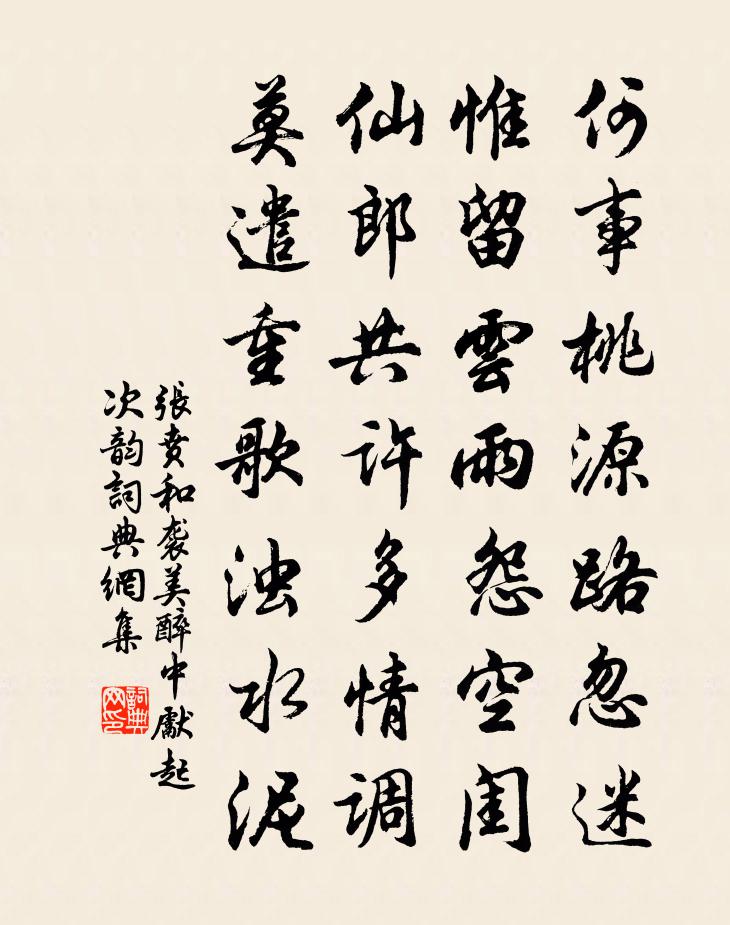 何事桃源路忽迷
惟留雲雨怨空闺
仙郎共许多情调
莫遣重歌浊水泥
張贲和袭美醉中獻起
次韵詞典網集
詞典网印